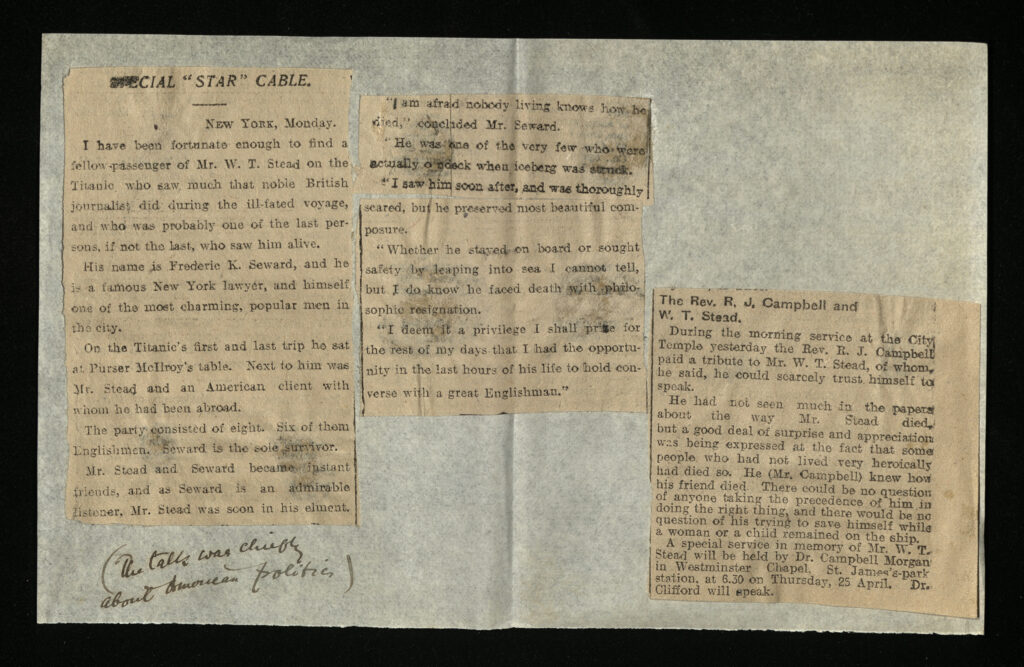 CIAL "STAR" CABLE.
NEW YORK, Monday.
I have been fortunate enough to find a
fellow-passenger of Mr. W. T. Stead on the
Titanic who saw much that noble British
journalist did during the ill-fated voyage,
and who was probably one of the last per-
sons, if not the last, who saw him alive.
His name is Frederic K. Seward, and he
is a famous New York lawyer, and himself
one of the most charming, popular men in
the city.
On the Titanic's first and last trip he sat
at Purser McIlroy's table. Next to him was
Mr. Stead and an American client with
whom he had been abroad.
The party consisted of eight. Six of them
Englishmen. Seward is the sole survivor.
Mr. Stead and Seward became instant
friends, and as Seward is an admirable
listener, Mr. Stead was soon in his elment.
(The talk was chiefly
about American politics)
"I am afraid nobody living knows how he
died," concluded Mr. Seward.
"He was one of the very few who were
actually o deck when iceberg was struck.
"I saw him soon after, and was thoroughly
scared, but he preserved most beautiful com-
posure.
"Whether he stayed on board or sought
safety by leaping into sea I cannot tell,
but I do know he faced death with philo-
sophic resignation.
"I deem it a privilege I shall prize for
the rest of my days that I had the opportu-
nity in the last hours of his life to hold con-
verse with a great Englishman."
The Rev. R. J. Campbell and
W. T. Stead.
During the morning service at the City
Temple yesterday the Rev. R. J. Campbell
paid a tribute to Mr. W. T. Stead, of whom,
he said, he could scarcely trust himself to
speak.
He had not seen much in the papers
about the way Mr. Stead died,
but a good deal of surprise and appreciation
was being expressed at the fact that some
people who had not lived very heroically
had died so. He (Mr. Campbell) knew how
his friend died. There could be no question
of anyone taking the precedence of him in
doing the right thing, and there would be no
question of his trying to save himself while
a woman or a child remained on the ship.
A special service in memory of Mr. W. T.
Stead will be held by Dr. Campbell Morgan
in Westminster Chapel, St. James's-park
station, at 6.30 on Thursday, 25 April. Dr.
Clifford will speak.